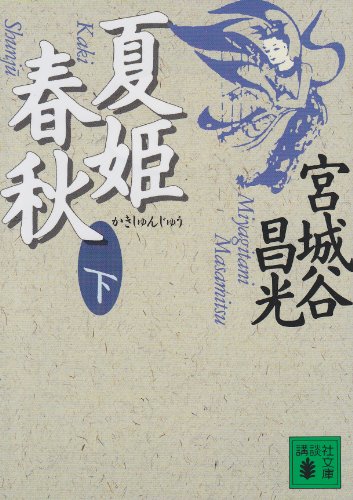 夏姫
春秋
かきしゅんじゅう
Kaki
Shunjū
下
宮城谷
昌光
Miyagitani
Masamitsu
講談
社文庫